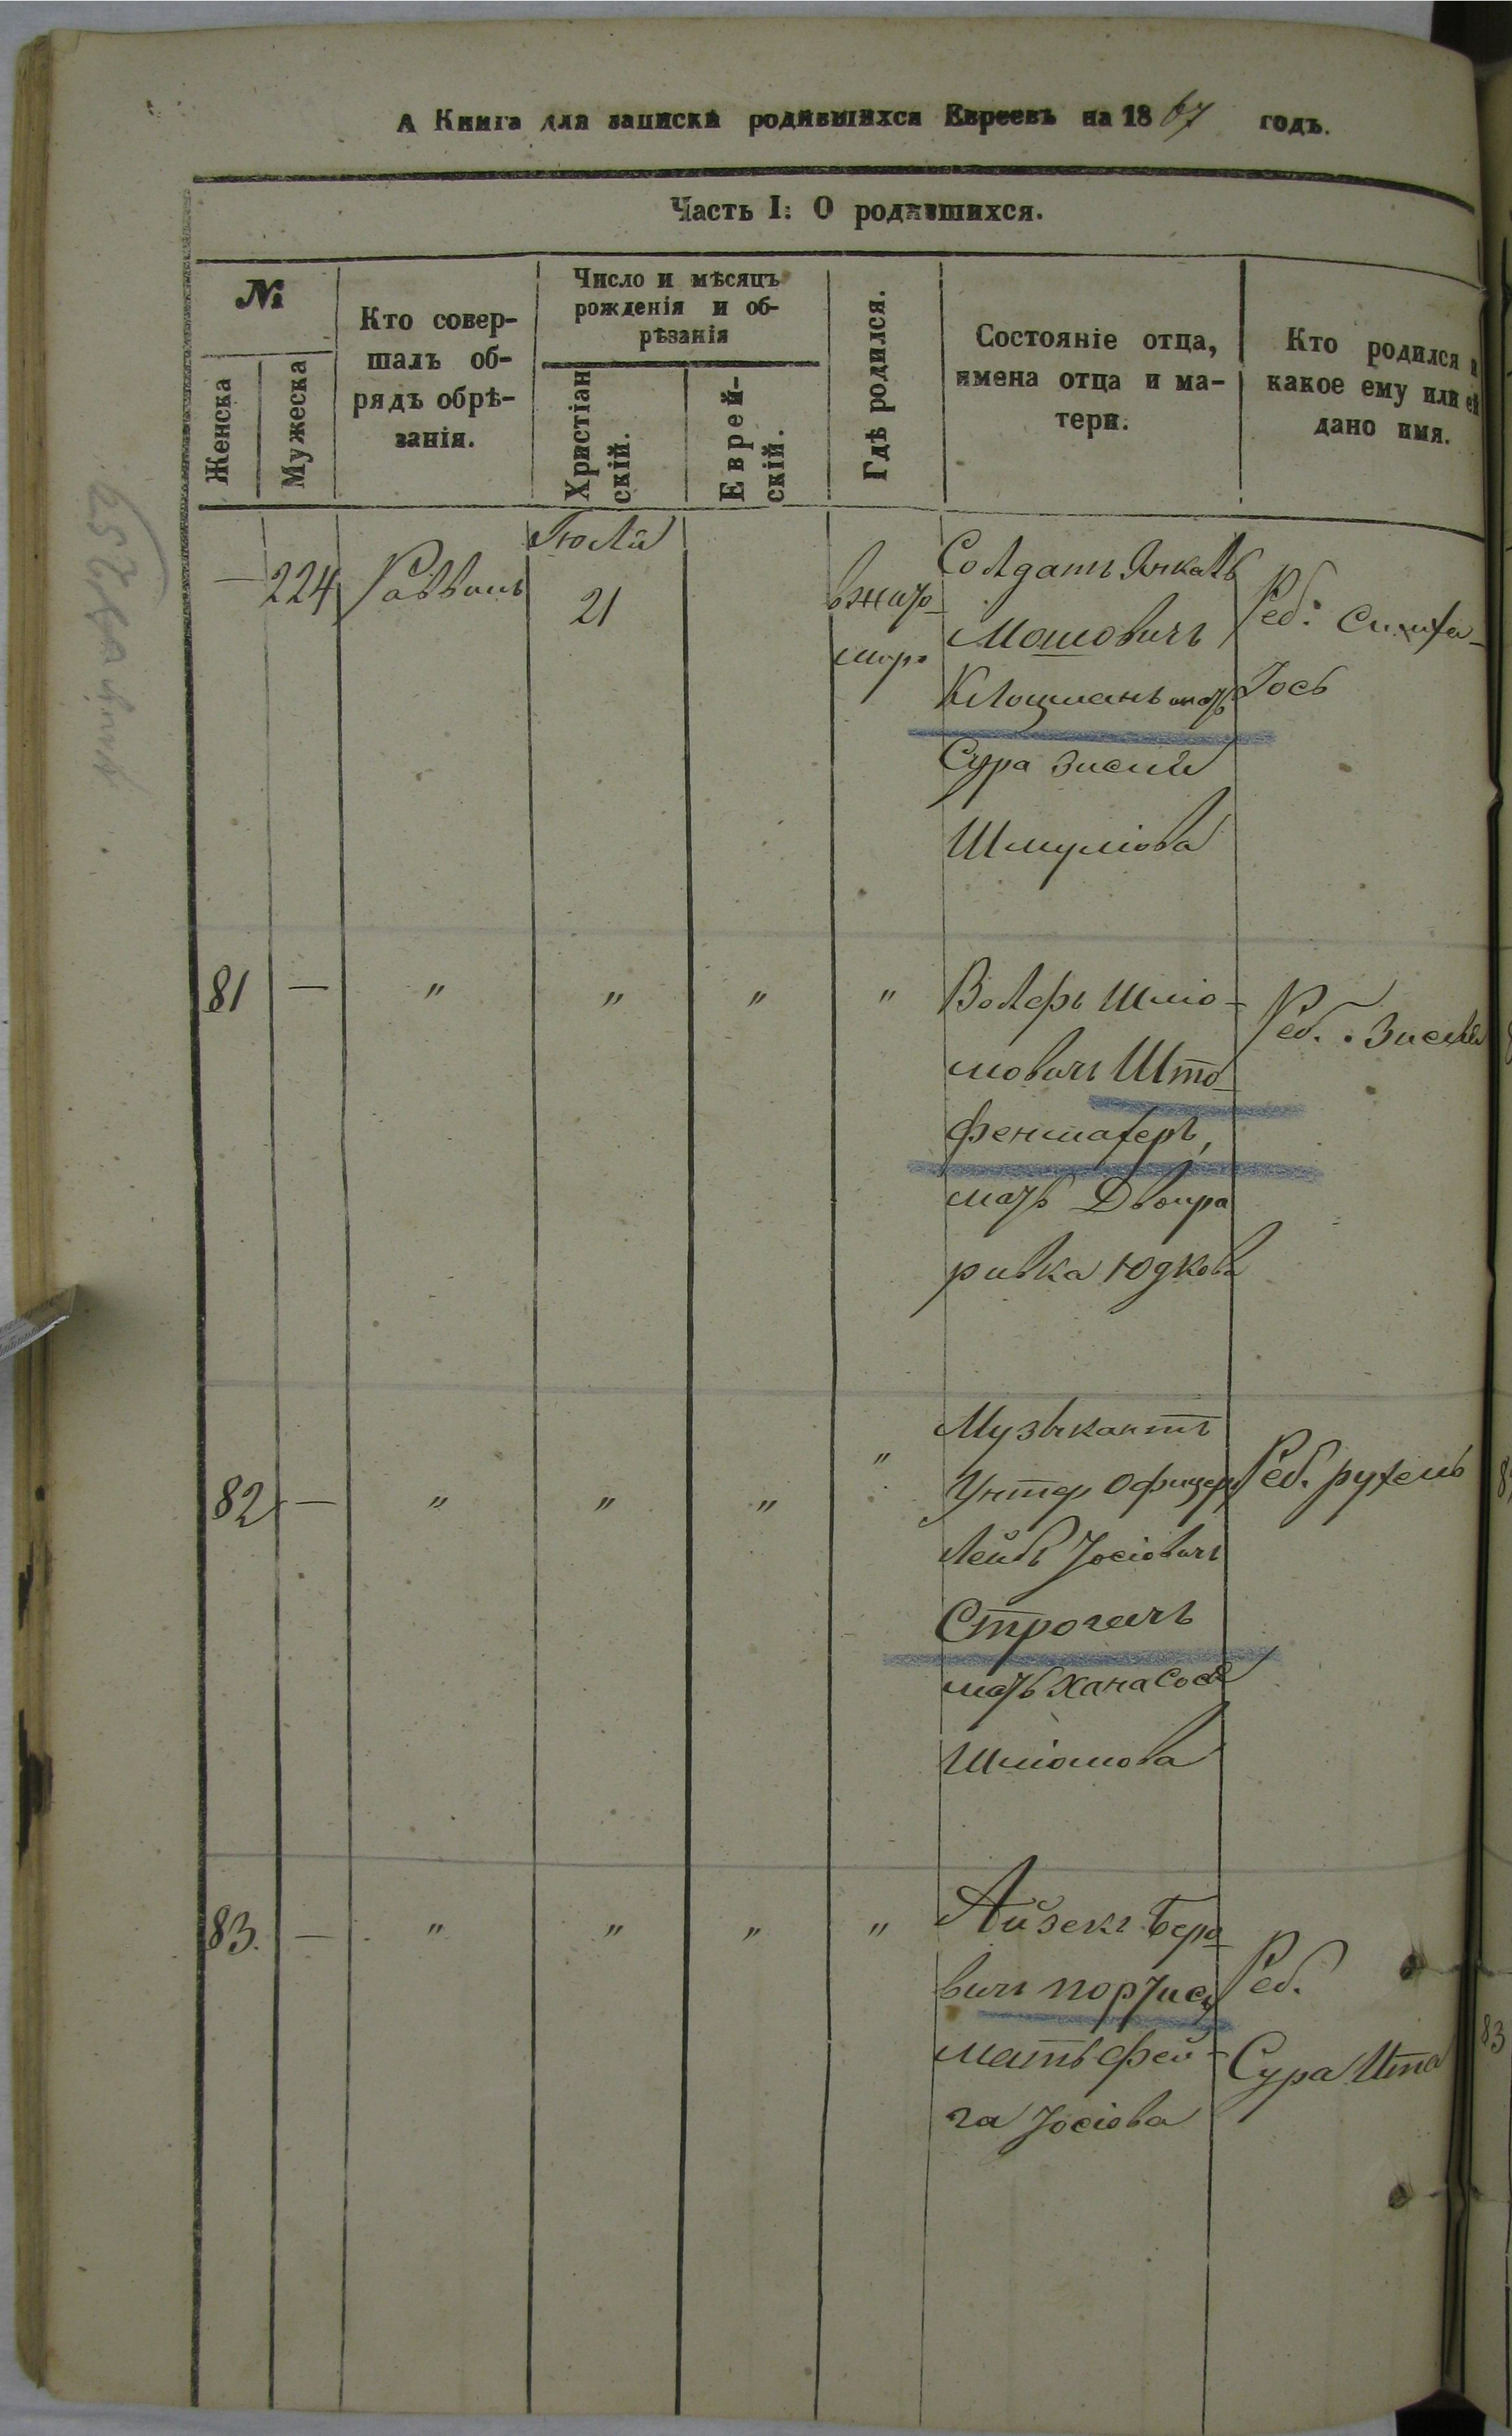 А Книга для записки родившихся Евреевъ на 1867 годъ.
Часть I: О родившихся.
№
Женска
Мужеска
Кто совер-
шалъ об-
рядъ обрѣ-
занія.
Число и мѣсяцъ
рожденія и об-
рѣзанія
Христіан
скій.
Еврей-
скій.
Гдѣ родился.
Состояніе отца,
имена отца и ма-
тери.
Кто родился и
какое ему или ей
дано имя.
Іюля
— 224 21
вжито
мирѣ
Солдатъ Янкель
Мошовичъ
Клоцманъ мать
Сура
Шмуліова
Реб: Симха
Іось
81 — " " " "
Волфъ Шліо-
мовичъ Што-
фенмахеръ,
мать Двойра
ривка Юдкова
Реб.
82 — " " " "
Музыкантъ
Унтер Офицеръ
Лейбъ Іосіовичъ
Строгачъ
мать Хана Сося
Шліомова
Реб. рухель
83. — " " " "
Айзекъ Беро-
вичъ
мать Фей-
га Іосіова
Реб.
Сура Ита
83